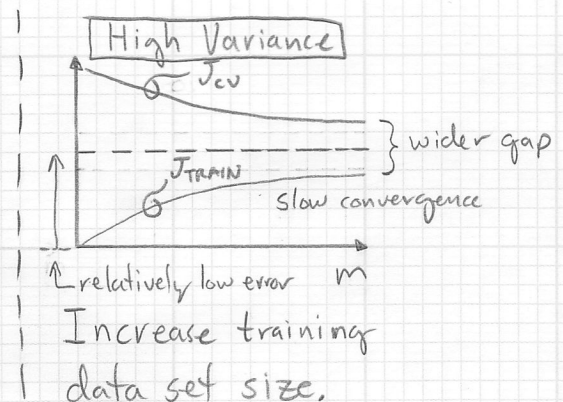 High Variance
J_CV
wider gap
J_TRAIN
slow convergence
m
relatively low error
Increase training
data set size.